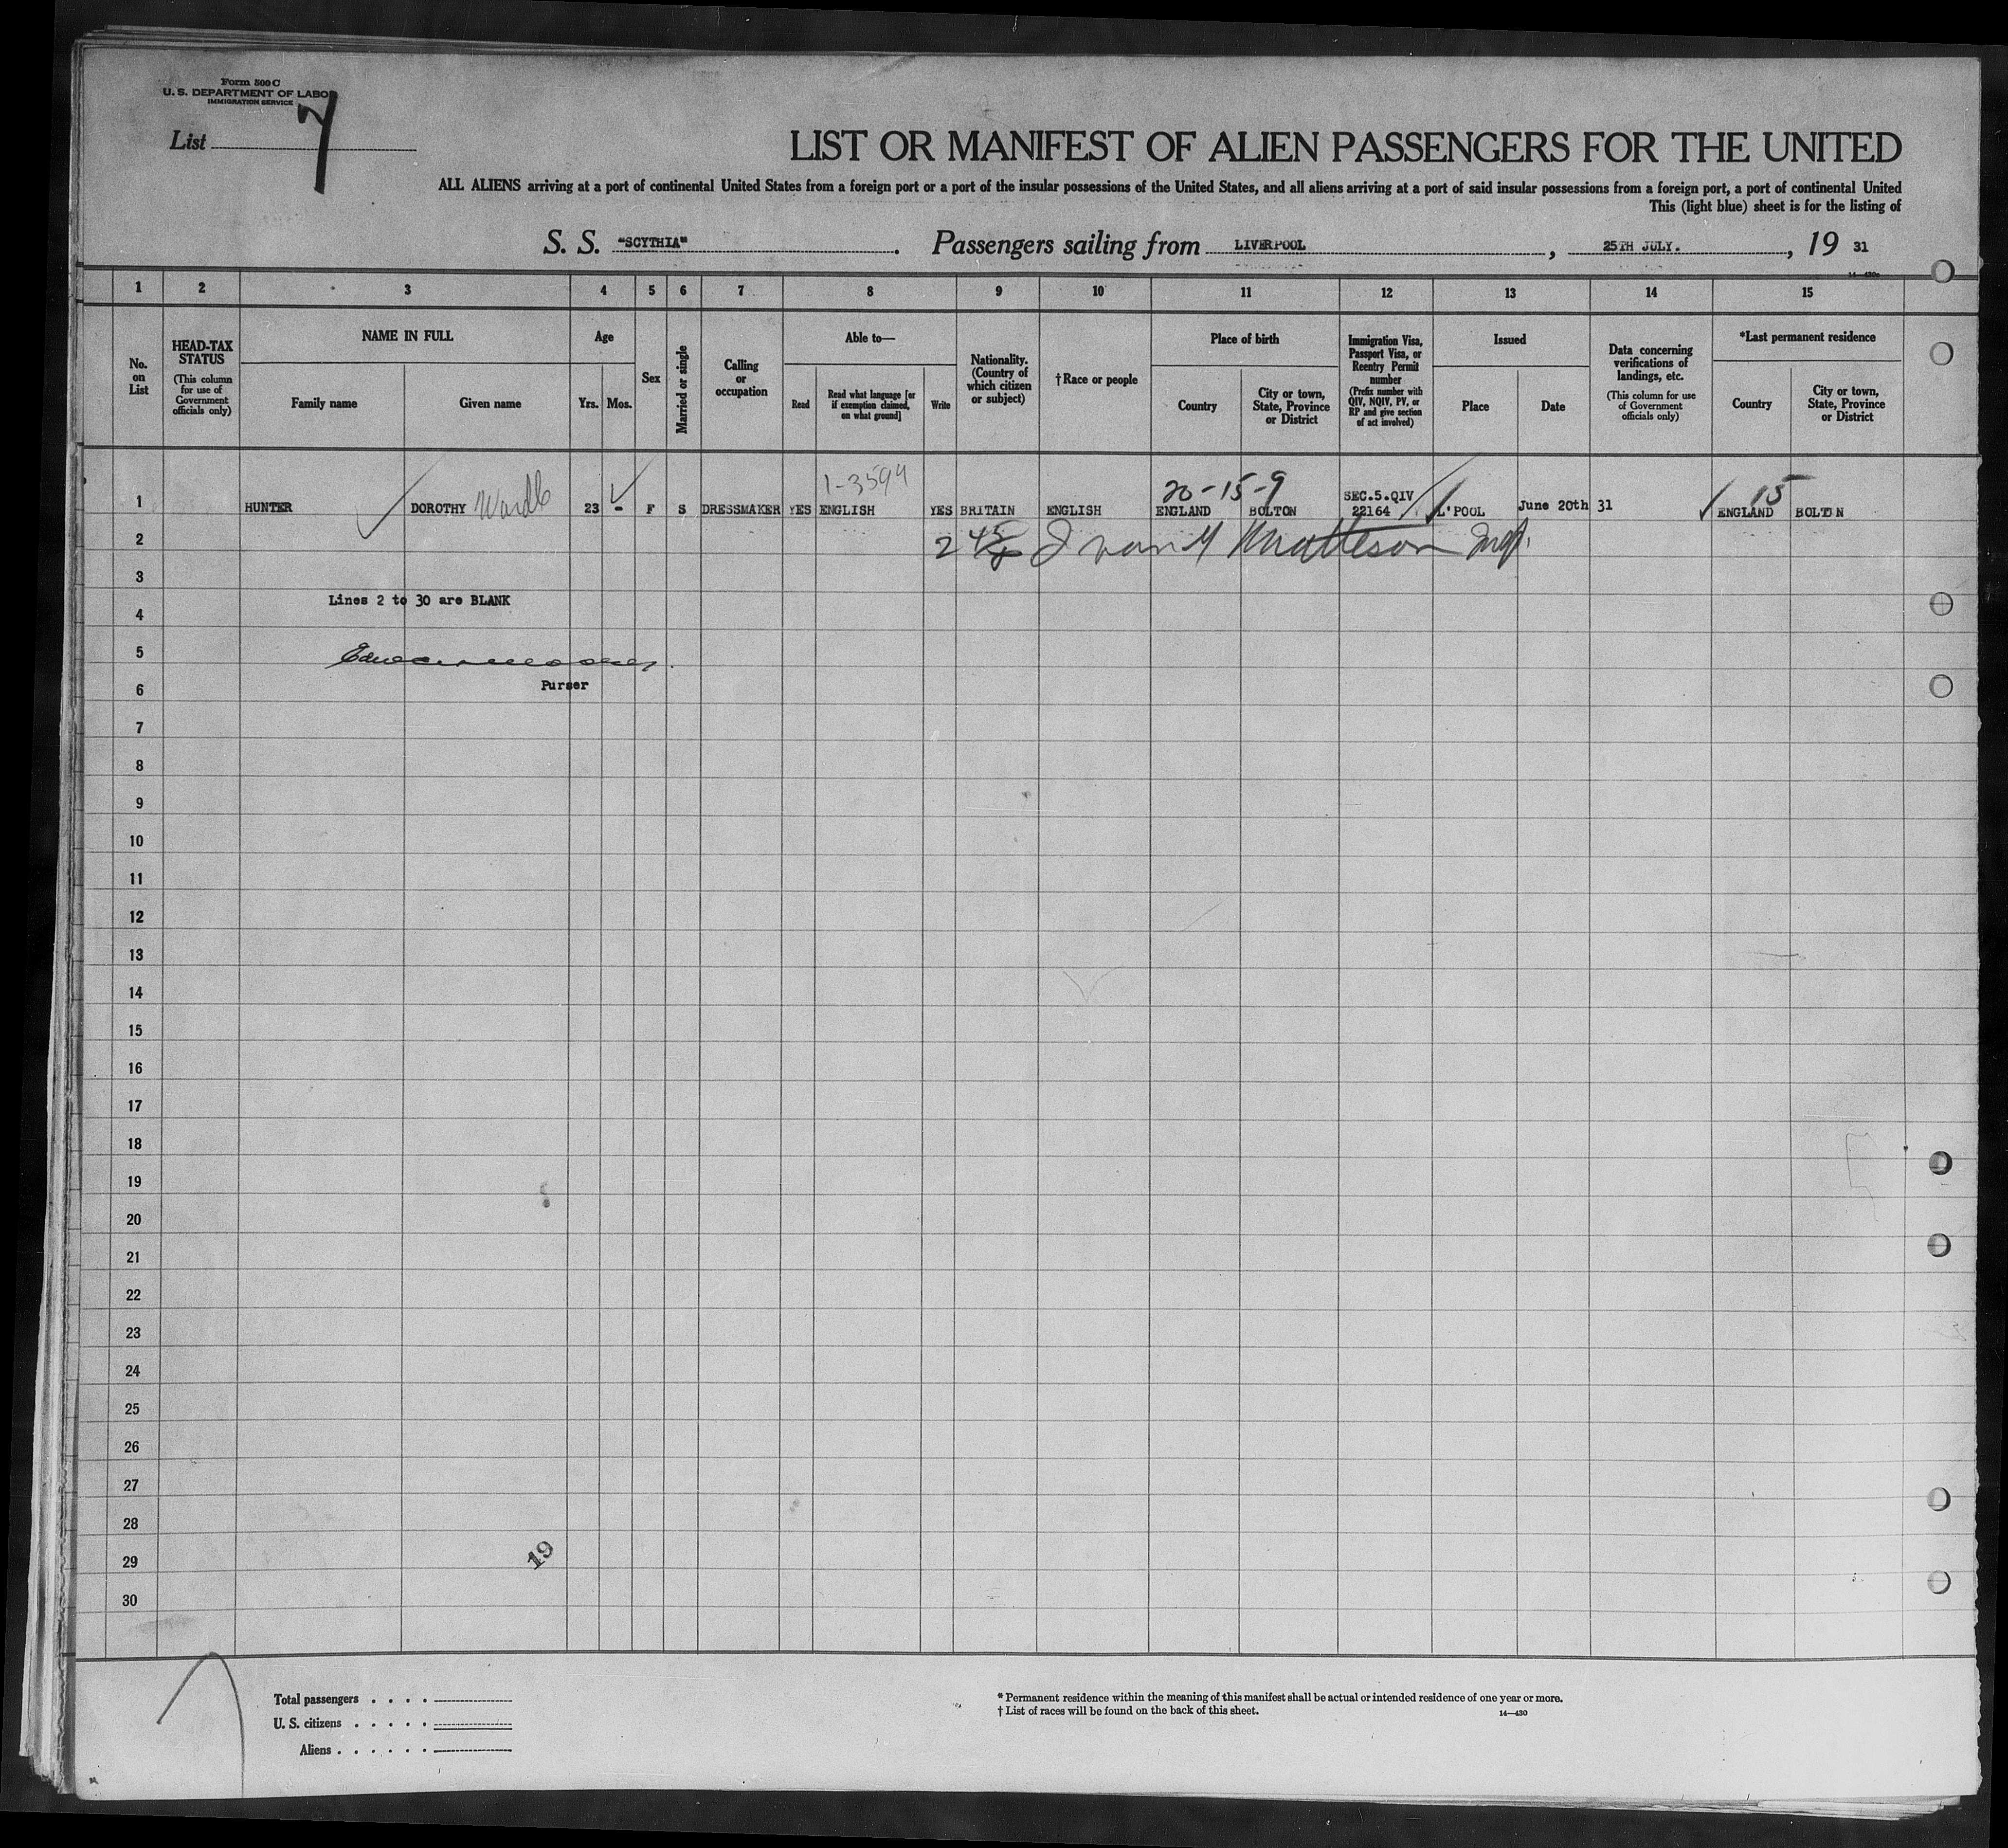 Form 500 C
U. S. DEPARTMENT OF LABOR
IMMIGRATION SERVICE
List 7
LIST OR MANIFEST OF ALIEN PASSENGERS FOR THE UNITED
ALL ALIENS arriving at a port of continental United States from a foreign port or a port of the insular possessions of the United States, and all aliens arriving at a port of said insular possessions from a foreign port, a port of continental United
This (light blue) sheet is for the listing of
S. S. "SCYTHIA". Passengers sailing from LIVERPOOL, 25TH JULY., 19 31
14—430c
1 2 3 4 5 6 7 8 9 10 11 12 13 14 15
No. on List
HEAD-TAX STATUS (This column for use of Government officials only)
NAME IN FULL
Family name
Given name
Age
Yrs.
Mos.
Sex
Married or single
Calling or occupation
Able to—
Read
Read what language [or if exemption claimed, on what ground]
Write
Nationality. (Country of which citizen or subject)
†Race or people
Place of birth
Country
City or town, State, Province or District
Immigration Visa, Passport Visa, or Reentry Permit number (Prefix number with QIV, NQIV, PV, or RP and give section of act involved)
Issued
Place
Date
Data concerning verifications of landings, etc. (This column for use of Government officials only)
*Last permanent residence
Country
City or town, State, Province or District
1-3594
20-15-9
15
SEC.5.QIV
1 HUNTER DOROTHY Wardle 23 - F S DRESSMAKER YES ENGLISH YES BRITAIN ENGLISH ENGLAND BOLTON 22164 L'POOL June 20th 31 ENGLAND BOLTON
2 Matteson Insp.
3
Lines 2 to 30 are BLANK
4
5
6 Purser
7
8
9
10
11
12
13
14
15
16
17
18
19
20
21
22
23
24
25
26
27
28
29 19
30
Total passengers . . . .
U. S. citizens . . . . .
Aliens . . . . . .
* Permanent residence within the meaning of this manifest shall be actual or intended residence of one year or more.
† List of races will be found on the back of this sheet. 14—430